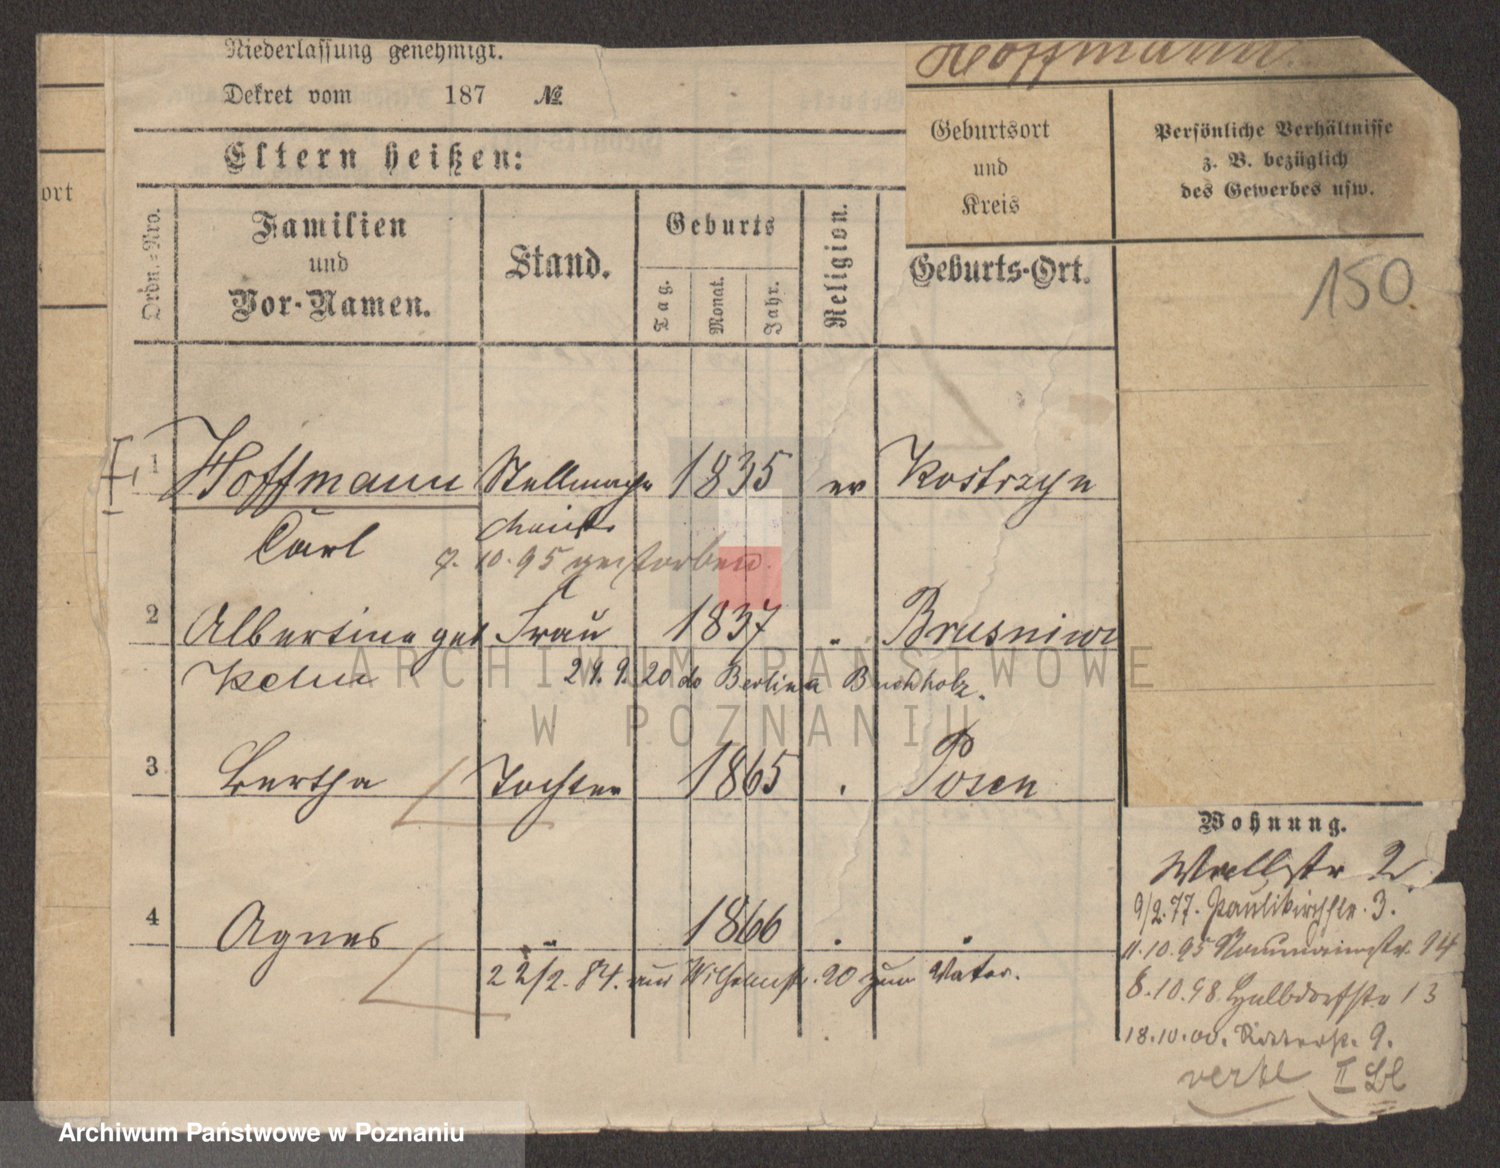 Niederlassung genehmigt.
Hoffmann
Dekret vom 187 №
Eltern heißen:
Geburtsort
und
Kreis
Persönliche Verhältnisse
z. B. bezüglich
des Gewerbes usw.
ort
Ordn.=Nro.
Familien
und
Vor-Namen.
Stand.
Geburts
Tag.
Monat.
Jahr.
Religion.
Geburts-Ort.
150.
1 Hoffmann Stellmacher 1835 ev Kostrzyn
Carl
10.95 gestorben.
2 Albertine geb Frau 1837 " Brusniwi
29.9.20 do Berlin Buchholz.
3 Bertha Tochter 1865 . Posen
4 Agnes " 1866 . .
22/2.84. aus Wilhelmstr. 20 zum Vater.
Wohnung.
Wallstr 2.
9/2.77. Paulikirchstr. 3.
11.10.95 Naumannstr. 14
8.10.98 Halbdorfstr 13
18.10.00. Ritterstr. 9.
verte II Bl
ARCHIWUM PAŃSTWOWE
W POZNANIU
Archiwum Państwowe w Poznaniu